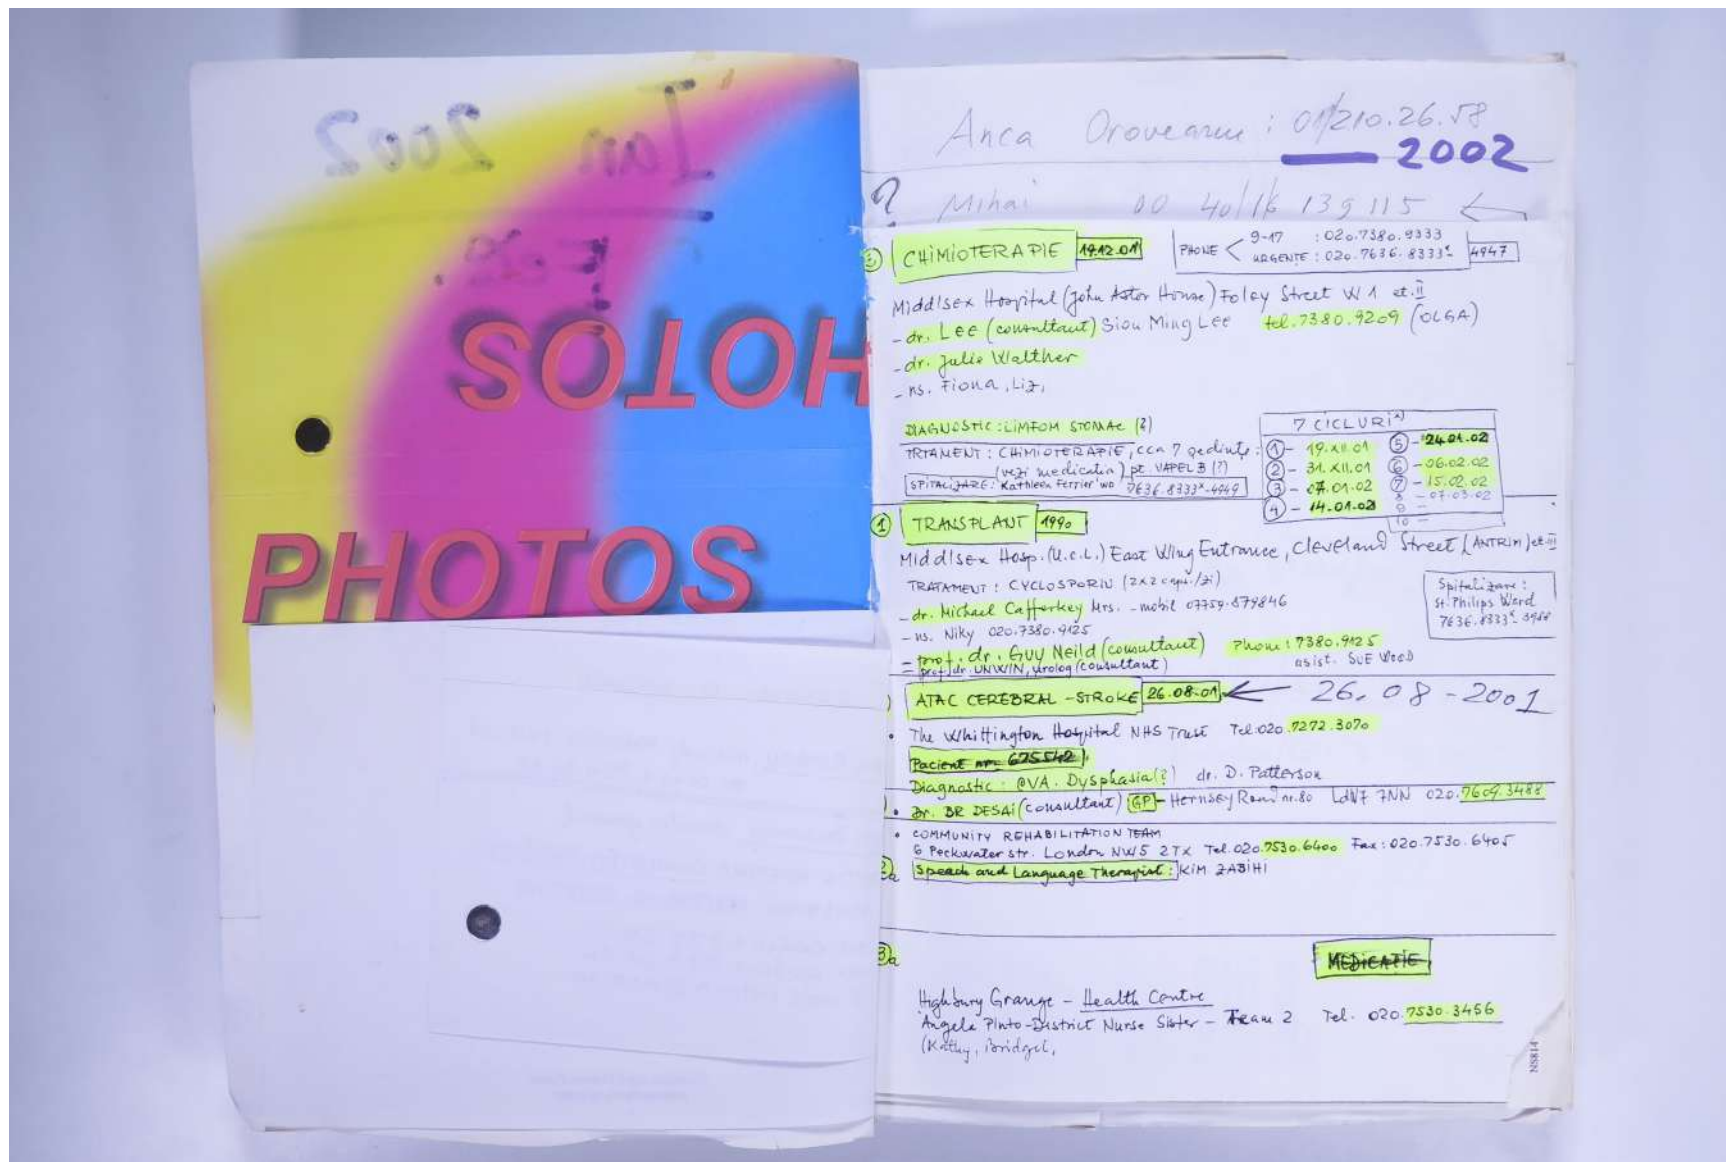 Ian 2002
Feb.
PHOTOS
PHOTOS
Anca Oroveanu : 01/210.26.58
2002
? Mihai 00 40/16 139 115
CHIMIOTERAPIE 19.12.01
PHONE 9-17 : 020.7380.9333
URGENȚE : 020.7636.8333x 4947
Middlsex Hospital (John Astor House) Foley Street W1 et.II
- dr. Lee (consultant) Siou Ming Lee tel. 7380.9209 (OLGA)
- dr. Julie Walther
- ns. Fiona, Liz,
DIAGNOSTIC : LIMFOM STOMAC (?)
TRTAMENT : CHIMIOTERAPIE, cca 7 ședințe :
(vezi medicația) pt. VAPEL B (?)
SPITALIZARE : Kathleen Ferrier wo 7636.8333x-4949
7 CICLURI x)
1 - 19.XII.01
2 - 31.XII.01
3 - 07.01.02
4 - 14.01.02
5 - 24.01.02
6 - 06.02.02
7 - 15.02.02
8 - 07.03.02
9 -
10 -
1 TRANSPLANT 1990
Middlsex Hosp. (U.C.L.) East Wing Entrance, Cleveland Street (ANTRIM) et.III
TRATAMENT : CYCLOSPORIN (2x2 caps./zi)
- dr. Michael Cafferkey Mrs. - mobil 07759.879846
- ns. Niky 020.7380.9125
= prof. dr. Guy Neild (consultant) Phone : 7380.9125
asist. SUE WOOD
= prof. dr. UNWIN, urolog (consultant)
Spitalizare :
St. Philips Ward
7636.8333x-3988
ATAC CEREBRAL - STROKE 26.08.01 26.08-2001
• The Whittington Hospital NHS Trust Tel.020.7272.3070
Pacient nr. 675542
Diagnostic : CVA. Dysphasia (?) dr. D. Patterson
• Dr. BR DESAI (consultant) GP - Hernsey Road nr.80 LdN7 7NN 020.7609.3488
• COMMUNITY REHABILITATION TEAM
6 Peckwater str. London NW5 2TX Tel.020.7530.6400 Fax : 020.7530.6405
2a Speach and Language Therapist : KIM ZABIHI
3a MEDICAȚIE
Highbury Grange - Health Centre
Angela Pinto - District Nurse Sister - Team 2 Tel. 020.7530.3456
(Kathy, Bridget,
NS814